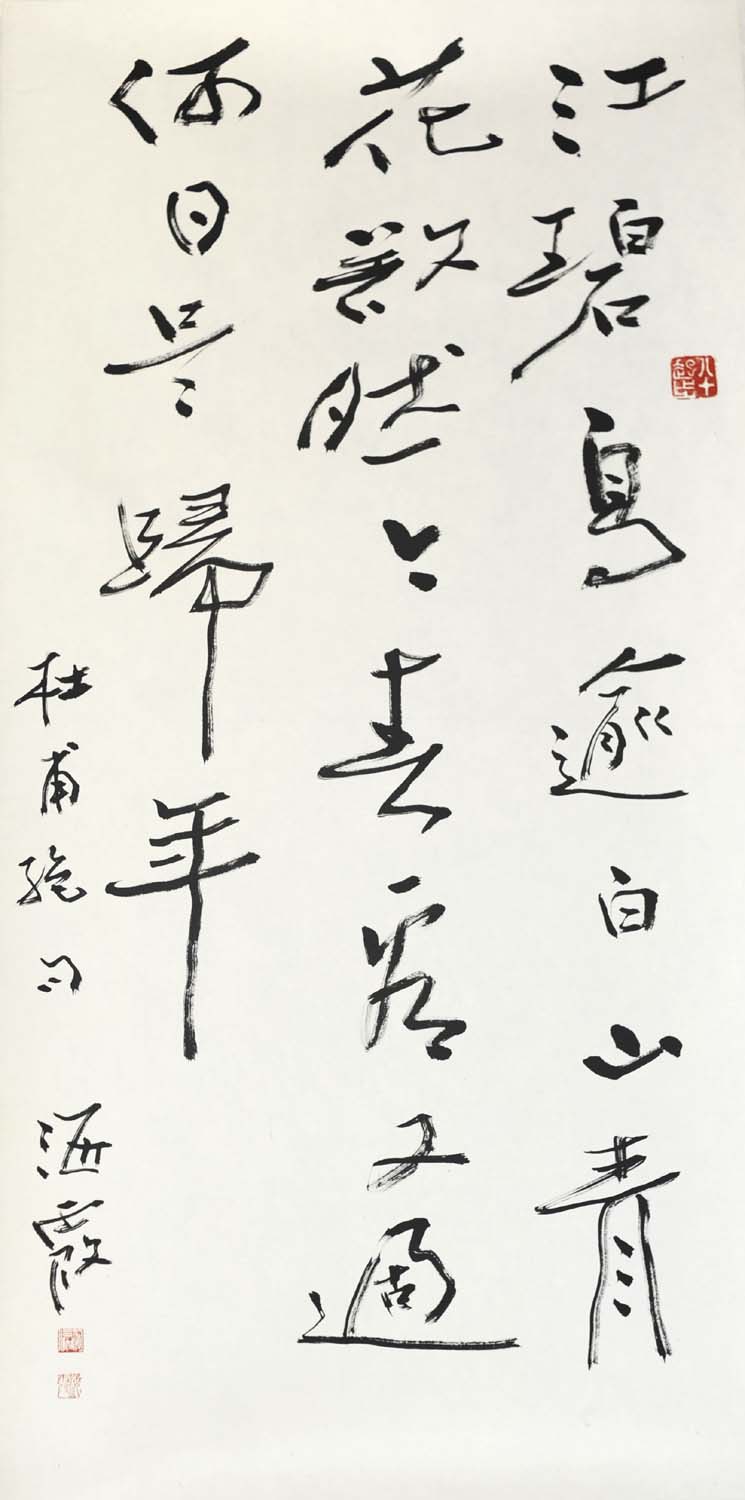 江碧鳥逾白山青
花欲然今春看又過
何日是歸年
杜甫絕句 海霞
八十